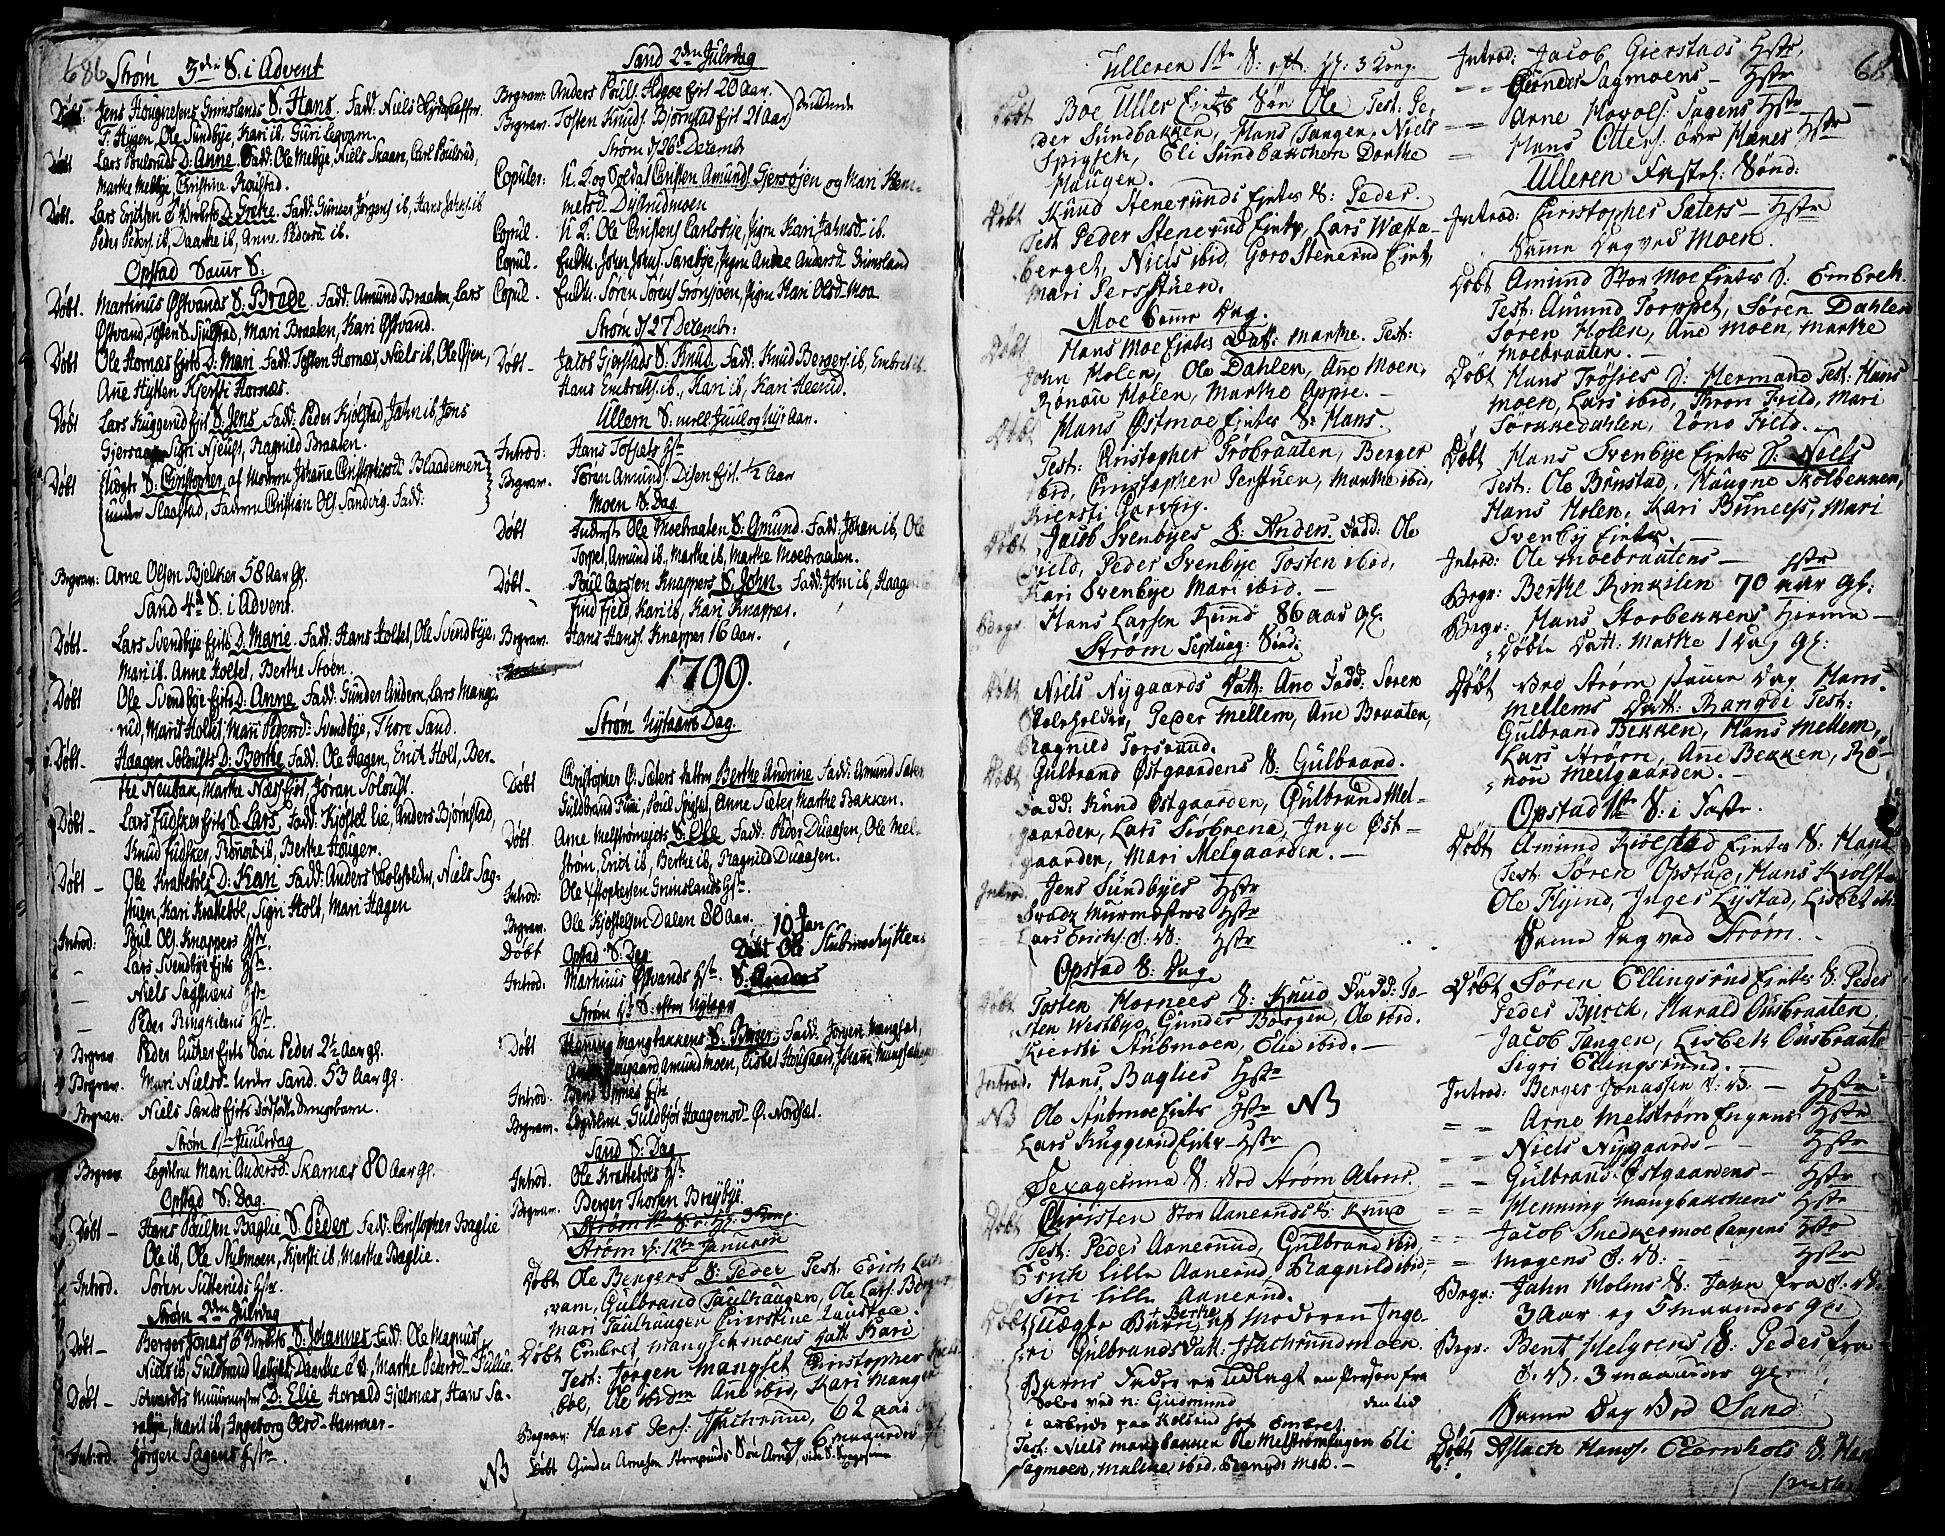 686
Strøm 3die S. i Advent
Døbt Jens Haugnesens Grimslands S. Hans. Fadd: Niels
T. Hygen, Ole Sundbye, Kari ib. Guri Legvam.
Døbt Lars Poulsruds D: Anne. Fadd: Ole Mebye, Niels Skaan, Carl Poulsrud,
Marthe Mebbye Christine Poulstad.
Døbt. Lars Erichsen O Verkets D: Grethe. Fadd: Gunder Jørgens ib, Hans Jahns. ib
Peder Peders. ib, Daarthe ib, Anne Pedersd ib.
Opstad Samme S:
Døbt. Martinus Østvands S: Brede. Fadd: Amund Braaten, Lars
Østvand, Tosten Sjulstad, Mari Braaten, Kari Østvand.
Døbt Ole Hornæs Ejets D: Mari Fadd: Tosten Hornæs, Niels ib, Ole Ofsen,
Anne Hytten Kjersti Hornæs.
Døbt Lars Kuggerud Ejet S: Jens Fadd: Peder Kjølstad, Jahn ib, Jens
Gjersaagen Siri Njeust, Ragnild Braaten.
Døbt Uægte S: Christopher af Moderen Johanne Christophersd: Blaademen
under Slaastad, Faderen Christian Ols. Sandvig. Fadd:
Begrav: Arne Olsen Bjelker 58 Aar Gl.
Sand 4de S: i Advent.
Døbt Lars Svendbye Ejets D. Marie. Fadd: Hans Holtet, Ole Svendbye,
Mari ib. Anne Holtet, Berthe Stoen.
Døbt Ole Svendbye Ejets D. Anne. Fadd: Gunder Andern, Lars Mange
rud, Marit Holtet, Mari Pedersd: Svendbye, Thore Sand.
Døbt. Haagen Solousts D: Berthe Fadd: Ole Hagen, Erich Holt, Ber-
the Neubak, Marthe Næss Ejet, Jøran Soloust.
Døbt Lars Fudsker Ejets S: Lars, Fadd: Kjøstel Lie, Anders Bjørnstad,
Knud Fudsker, Rønnov ib, Berthe Houger.
Døbt Ole Krattebøls D: Kari Fadd: Anders Skolsholder, Niels Sag-
stuen, Kari Krattebøl, Sigri Holt, Mari Hagen
Introd: Poul Ols. Knappers Hstr.
- Lars Svendbye Ejets Hstr.
- Niels Sagstuens Hstr
- Peder Ringkilens Hstr.
Begrav. Peder Lutner Ejets Søn Peder 2½ Aar gl.
Begrav. Mari Nielsd. under Sand. 53 Aar Gl.
Begrav. Niels Sands Ejets dødfødte drengebarn.
Strøm 1ste Juuledag
Begrav Logdlem Mari Andersd: Skarnæs 80 Aar Gl.
Opstad S: Dag.
Døbt Hans Poulsen Baglie S. Peder Fadd: Christopher Baglie
Ole ib, Ole Stubmoen, Kjersti ib, Marthe Baglie.
Introd. Søren Sutteruds Hstr.
Strøm 2den Juledag
Døbt Berger Jonas. O Verkets S. Johannes Fadd: Ole Magnus.
Niels ib, Guldbrand
Døbt Edvardts Muurmester D. Elie Harald Gjelernæs, Hans Sa-
rebye, Marit ib, Ingeborg Olsd. Hammer-
Introd: Jørgen Sagens Hstr.
Sand 2den Juledag
Begrav: Anders Pouls. Hogse Ejet 20 Aar.
Begrav. Tosten Knuds. Bjørnstad Ejet 21 Aar
Strøm d. 26de Decembr
Copuler: U. D. og Soldat Christen Amunds. Gjersøjen og Mari Hem-
metsd. Dysterudmoen
Copul. U. K. Ole Christens. Carlsbye, Pigen Kari Jahnsd. ib.
Copul. EnkM. John Johns. Sarebye, Pigen Anne Andersd. Grimsland
Copul. EnkM. Søren Sørens. Grønsjoen, Pigen Kari Olsd. Moe
Strøm d. 27 Decembr:
Døbt Jacob Gjerstads S. Knud. Fadd: Knud Bergers. ib, Embret ib.
Hans Embrets. ib., Kari ib, Kari Heerud.
Ullern S: mell. Juul og Nyt Aar.
Introd: Hans Tofsets Hstr
Begrav: Søren Amunds. Disen Ejet ½ Aar
Moen S. Dag
Døbt Ole Moebraaten S: Amund. Fadd: Johan ib, Ole
Torpet, Amund ib., Marthe ib, Marthe Moebraaten.
Døbt. Poul Larsen Knappers S. John. Fadd: John ib, Haag
Findfjeld, Kari ib, Kari Knapper.
Begrav. Hans Hans. Knapper 16 Aar.
1799.
Strøm Nytaars Dag.
Døbt Christopher Ø. Sæters datter Berthe Andrine Fadd: Amund Sæter
Guldbrand Fluxe, Poul Spigset, Anne Sæter, Marthe Bakken.
Døbt. Arne Melstrømejets S. Ole Fadd: Peder Duaasen, Ole Mel-
strøm, Erich ib, Berthe ib, Ragnild Duaasen.
Introd: Ole Christophersen Grimslands Hstr.
Begrav. Ole Kjøstelsen Dalen 80 Aar.
10 Jan
Døbt Opstad S: Dag Døbt Ole Stubmoehyttens
Introd. Martinus Østvands Hstr. S: Anders
Strøm 1ste S. efter Nytaar
Døbt Henning Mangbakkens S. Peder, Fadd: Jørgen Mangset,
Amundmoen, Lisbet Houggaar, Johanne Mangset
Introd: Bent Opnæs Hstr
Begrav. Logdlem Guldbjør Haagensd: Ø. Nordset.
Sand S: Dag
Introd. Ole Krattebøls Hstr.
Begrav. Berger Thorsen Breybye.
Strøm 1ste S. e. H. 3 Kong
Strøm d. 12te Januarii
Døbt Ole Bergers S: Peder Test: Erich Leet-
vam, Gulbrand Taulhaugen, Ole Lars. Berger
Mari Taulhaugen Christine Taustae.
Døbt Embret Mangsetmoens Datt: Kari
Test: Jørgen Mangset Christopher
bøl, Ole ibidm Ane ibid, Kari Manger
Begrav: Hans Pers. Stachrud, 62 aar
og 6 maaneder gl
NB Døbt Gunder Arnesen Stompruds Søn Arne,
Ulleren 1ste S: eft. H: 3 Kong.
Døbt Boe Uller Eiets Søn Ole Test: Pe-
der Sundbakken, Hans Tangen, Niels
Spigseth, Eli Sundbakchen Dorthe
Haugen.
Døbt Knud Stenerunds Eiets S: Peder.
Test Peder Stenerud Eiets, Lars Wæsta-
berget, Niels ibid, Goro Stenerud Eiet,
Mari Persstuen.
Moe Samme Dag.
Døbt Hans Moe Eiets Datt: Marthe. Test:
John Holen, Ole Dahlen, Ane Moen,
Rønau Holen, Marthe Oppie.
Døbt Hans Østmoe Eiets S: Hans.
Test: Christopher Trøbraaten, Berger
ibid, Christopher Persstuen, Marthe ibid,
Kiersti Gersvig.
Døbt Jacob Svenbyes S: Anders. Fadd: Ole
Field, Peder Svenbye Tosten ibid,
Kari Svenbye Mari ibid.
Begr. Hans Larsen Rund 86 aar gl.
Strøm Septuag: Sønd.
Døbt Niels Nygaards Datt: Ane Fadd: Søren
Skoleholder, Peder Mellem, Ane Braaten,
Ragnild Torsrund.
Døbt Gulbrand Østgaardens S: Gulbrand.
Fadd: Knud Østgaarden, Gulbrand Mel-
gaarden, Lars Siøbrena, Inge Øst-
gaarden, Mari Melgaarden.
Introd. Jens Sundbyes Hstr
Svadz Murmesters Hstr
Lars Erichs. O. V: Hstr
Opstad S: Dag
Døbt Tosten Hornees S: Knud Fadd: To-
sten Westbye, Gunder Borgen, Ole ibid.
Kiersti Stubmoen, Elie ibid.
Introd. Hans Baglies Hstr
NB Ole Stubmoe Eiets Hstr NB
Lars Kuggerud Eiets Hstr
Sexagesima S: ved Strøm Alene.
Døbt Christen Stor Aanerunds S: Knud
Test: Peder Aanerund, Gulbrand ibid,
Erich lille Aanerud, Ragnild ibid,
Siri lille Aanerud.
Døbt Uægte Barn + Berthe af Moderen Inge-
Siri Gulbrands Datt: Stachrundmoen.
Barns Fader er udlagt en Person fra
Soløe ved n: Gudmund den tid
i arbeide paa Kolsrud hos Embret
Test: Niels Mangbakken Ole Melstrømhagen Eli
Sagmoen, Malene ibid, Rangdi Moe.
Introd: Jacob Gierstads Hstr,
= = Gunder Sagmoens Hstr
= = Arne Havols: Sagens Hstr
= Hans Otters. over Hanes Hstr
Ulleren Fastel: Sønd:
Introd: Christopher Sæters Hstr
Samme Dag ved Moen.
Døbt Amund Stor Moe Eiets S: Embreth
Test: Amund Torppet, Søren Dahlen
Søren Holen, Ane Moen, Marthe
Moebraaten.
Døbt Hans Trøsies D: Hermand Test: Hans
Moen, Lars ibid, Thron Field, Mari
Sørkkedahlen, Røno Field.
Døbt Hans Svenbye Eiets S: Niels
Test: Ole Bunstad, Haugne Skolbekken,
Hans Holen, Kari Buness, Mari
Svenby Eiets.
Introd: Ole Moebraatens Hstr
Begr: Berthe Rinkilen 70 aar gl:
Begr: Hans Storbekkens hiemme
Døbte Datt: Marthe 1 Dag gl:
Døbt ved Strøm samme Dag Hans
Mellems Datt: Rangdi Test:
Gulbrand Bekken, Hans Mellem,
Lars Strøm, Ane Bekken, Rø-
non Melgaarden.
Opstad 1ste S: i Faste.
Døbt Amund Kiølstad Eiets S: Hans
Test: Søren Opstad, Hans Kiølstad
Ole Flyind, Inger Lystad, Lisbet ib.
Samme Dag ved Strøm.
Døbt Søren Ellingsrund Eiets S: Peder
Peder Bierck, Harald Ousbraaten,
Jacob Tangen, Lisbeth Ousbraate
Sigri Ellingsrund.
Introd: Berger Jonassen O. V. Hstr
= = Arne Melstrøm Engens Hstr
= = Niels Nygaards Hstr
= = Gulbrands Østgaardens Hstr
= = Henning Mangbakchens Hstr
= = Jacob Snedkermoe Tangens Hstr
= = Mogens O. V. Hstr
Begr: Jahn Holms S: Jahn fra O. V.
3 Aar og 5 maaneder gl:
Begr: Bent Helgesens S: Peder fra
O. V. 3 maaneder gl.
Samme Dag Ved Sand
Døbt Aslach Hans. Ekornhols S: Han